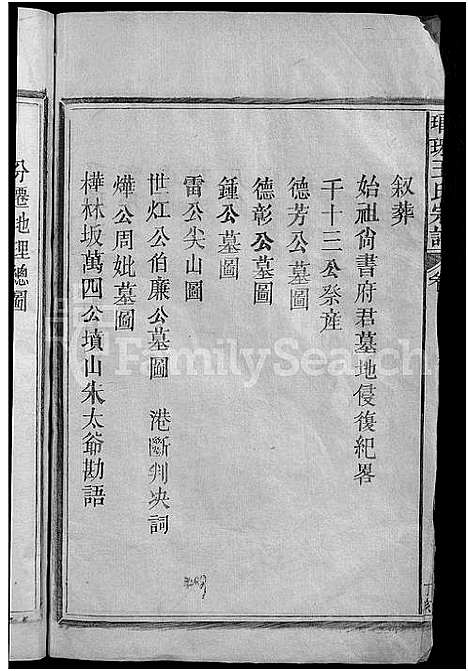 瑯琊王氏宗譜
叙葬
始祖尚書府君墓地侵復紀畧
千十三公祭産
德芳公墓圖
德彰公墓圖
鍾公墓圖
雷公尖山圖
世灴公伯廉公墓圖 港斷判决詞
燁公周妣墓圖
樺林坂萬四公墳山朱太爺勘語
分遷地理總圖
FamilySearch